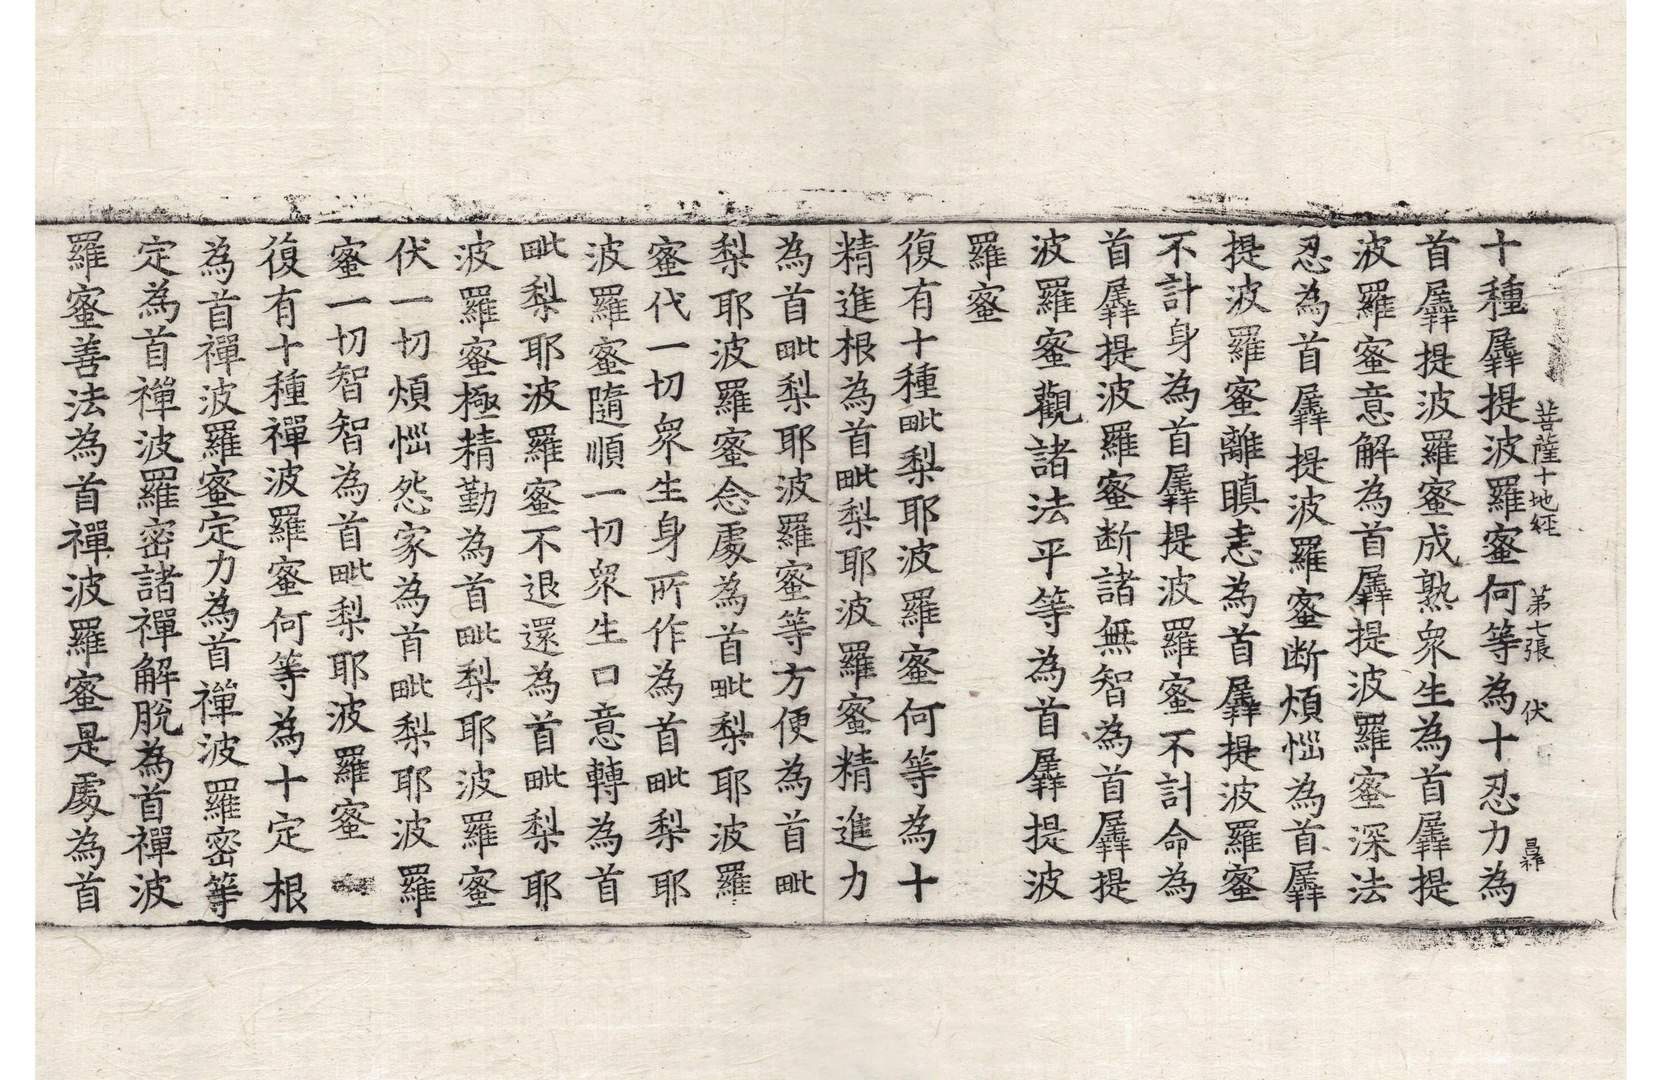 菩薩十地經 第七張 伏
十種羼提波羅蜜何等為十忍力為
首羼提波羅蜜成熟衆生為首羼提
波羅蜜意解為首羼提波羅蜜深法
忍為首羼提波羅蜜断煩惱為首羼
提波羅蜜離瞋恚為首羼提波羅蜜
不計身為首羼提波羅蜜不計命為
首羼提波羅蜜断諸無智為首羼提
波羅蜜觀諸法平等為首羼提波
羅蜜
復有十種毗梨耶波羅蜜何等為十
精進根為首毗梨耶波羅蜜精進力
為首毗梨耶波羅蜜等方便為首毗
梨耶波羅蜜念處為首毗梨耶波羅
蜜代一切衆生身所作為首毗梨耶
波羅蜜隨順一切衆生口意轉為首
毗梨耶波羅蜜不退還為首毗梨耶
波羅蜜極精勤為首毗梨耶波羅蜜
伏一切煩惱怨家為首毗梨耶波羅
蜜一切智智為首毗梨耶波羅蜜
復有十種禪波羅蜜何等為十定根
為首禪波羅蜜定力為首禪波羅密等
定為首禪波羅密諸禪解脫為首禪波
羅蜜善法為首禪波羅蜜是處為首